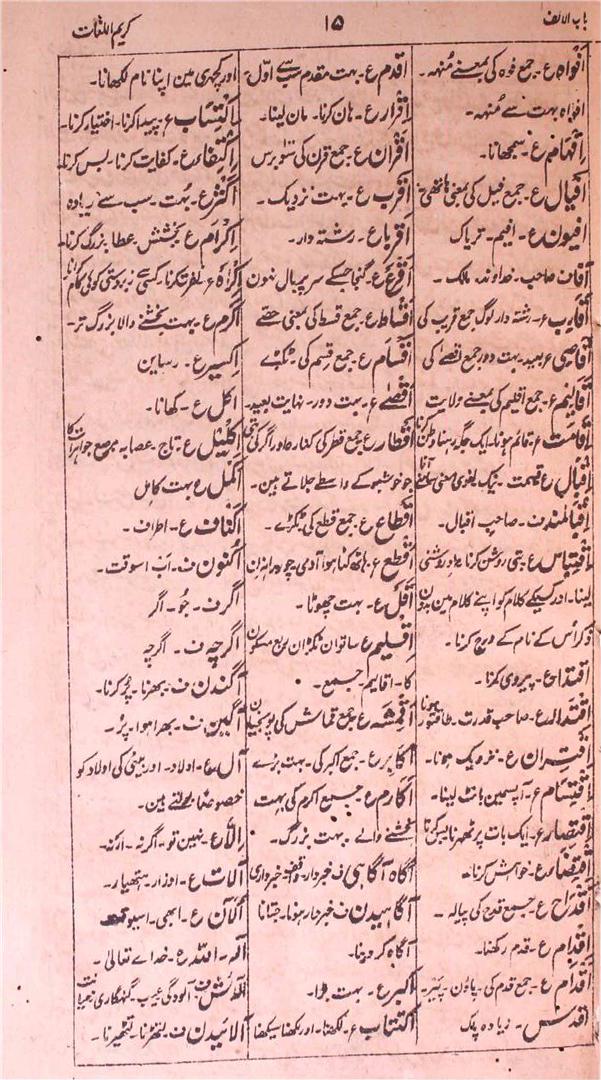 باب الالف
۱۵
کریم اللغات
اَفواہ ع۔ جمع فوہ کی بمعنے مُنہہ۔
افواہ بہت سے مُنہہ۔
اِفہام ع۔ سمجھانا۔
اَفیال ع۔ جمع فیل کی بمعنی ہاتھی
افیون ع۔ افیم۔ تریاک
آقا ف صاحب۔ خداوند۔ مالک۔
اَقارب ع۔ رشتہ دار لوگ جمع قریب کی
اَقاصی ع بعید۔ بہت دور جمع اقصے کی
اَقالیم ع۔ جمع اقلیم کی بمعنے ولایت
اِقامت ع۔ قائم ہونا۔ ایک جگہ رہنا
اِقبال ع قسمت۔ نیک لغوی معنی
اِقبالمند ف۔ صاحب اقبال۔
اِقتباس ع بتی روشن کرنا روشنی
لینا۔ اور کسیکے کلام کو اپنے کلام مین بدون
ذکر اُس کے نام کے درج کرنا۔
اقتدا ع۔ پیروی کرنا۔
اِقتدار ع۔ صاحب قدرت۔ طاقتور ہونا
اِقتِران ع۔ نزدیک ہونا۔
اِقتِسام ع۔ آپسمین بانٹ لینا۔
اِقتصار ع۔ ایک بات پر ٹھہرنا
اِقتِضا ع۔ خواہش کرنا۔
اَقداح ع۔ جمع قدح کی پیالہ۔
اِقدام ع۔ قدم رکھنا۔
اَقدام ع۔ جمع قدم کی۔ پاؤن۔ پَیر۔
اَقدس۔ زیادہ پاک
اَقدم ع۔ بہت مقدم سب سے اوّل
اِقرار ع۔ ہان کرنا۔ مان لینا۔
اَقران ع۔ جمع قرن کی
اَقرب ع۔ بہت نزدیک۔
اقربا ع۔ رشتہ دار۔
اَقرع ع۔ گنجا جسکے سر پر بال نہون
اَقساط ع۔ جمع قسط کی بمعنی حصے
اَقسام ع۔ جمع قسم کی۔ ٹکڑے
اَقصٰے ع۔ بہت دور۔ نہایت بعید۔
اَقطار ع جمع قطر کی کنارہ اور اگر کی بتی
جو خوشبو کے واسطے جلاتے ہین۔
اَقطاع ع۔ جمع قطع کی ٹکڑے۔
اَقطع ع۔ ہاتھ کٹا ہوا آدمی
اَقلّ ع۔ بہت چھوٹا۔
اِقلیم ع ساتوان ٹکڑا ربع مسکون
کا۔ اقالیم۔ جمع۔
اَقمِشہ ع جمع قماش کی پونجیان
اَکابر ع۔ جمع اکبر کی۔ بہت بڑے
اَکارم ع۔ جمع اکرم کی بہت
بخشنے والے۔ بہت بزرگ۔
آگاہ آگاہی ف خبردار۔ خبرداری
آگاہیدن ف خبردار ہونا۔ جتانا
آگاہ کر دینا۔
اکبر ع۔ بہت بڑا۔
اکتتاب ع۔ لکھنا۔ اور لکھنا سیکھنا
اور کچہری مین اپنا نام لکھانا۔
اِکتِساب ع۔ پیدا کرنا۔ اختیار کرنا۔
اِکتِفاء ع۔ کفایت کرنا۔ بس کرنا۔
اَکثر ع۔ بہت۔ سب سے زیادہ
اِکرام ع۔ بخشش۔ عطا۔ بزرگ کرنا۔
اِکراہ ع۔ نفرت کرنا۔ کسی سے زبردستی کوئی کام
اَکرم ع۔ بہت بخشنے والا بزرگ تر۔
اِکسیر ع۔ رساین
اکل ع۔ کھانا۔
اِکلیل ع۔ تاج۔ عصابہ مرصع جواہرات کا
اَکمل ع بہت کامل
اَکناف ع۔ اطراف۔
اَکنون ف۔ اب۔ اسوقت۔
اگر ف۔ جُو۔ اگر
اگرچہ ف۔ اگرچہ
آگندن ف۔ بھرنا۔ پُر کرنا۔
آگین ف۔ بھرا ہوا۔ پُر۔
آل ع۔ اولاد۔ اور بیٹی کی اولاد کو
خصوصًا بولتے ہین۔
اِلّا ع۔ نہین تو۔ اگر نہ۔ ارنہ۔
آلات ع۔ اوزار۔ ہتھیار۔
اَلآن ع۔ ابھی۔ اسیوقت
آلہ۔ اللہ ع۔ خداے تعالیٰ۔
آلائش ف۔ آلودگی عیب۔ گنہگاری
آلائیدن ف۔ لتھڑنا۔ لتھیڑنا۔